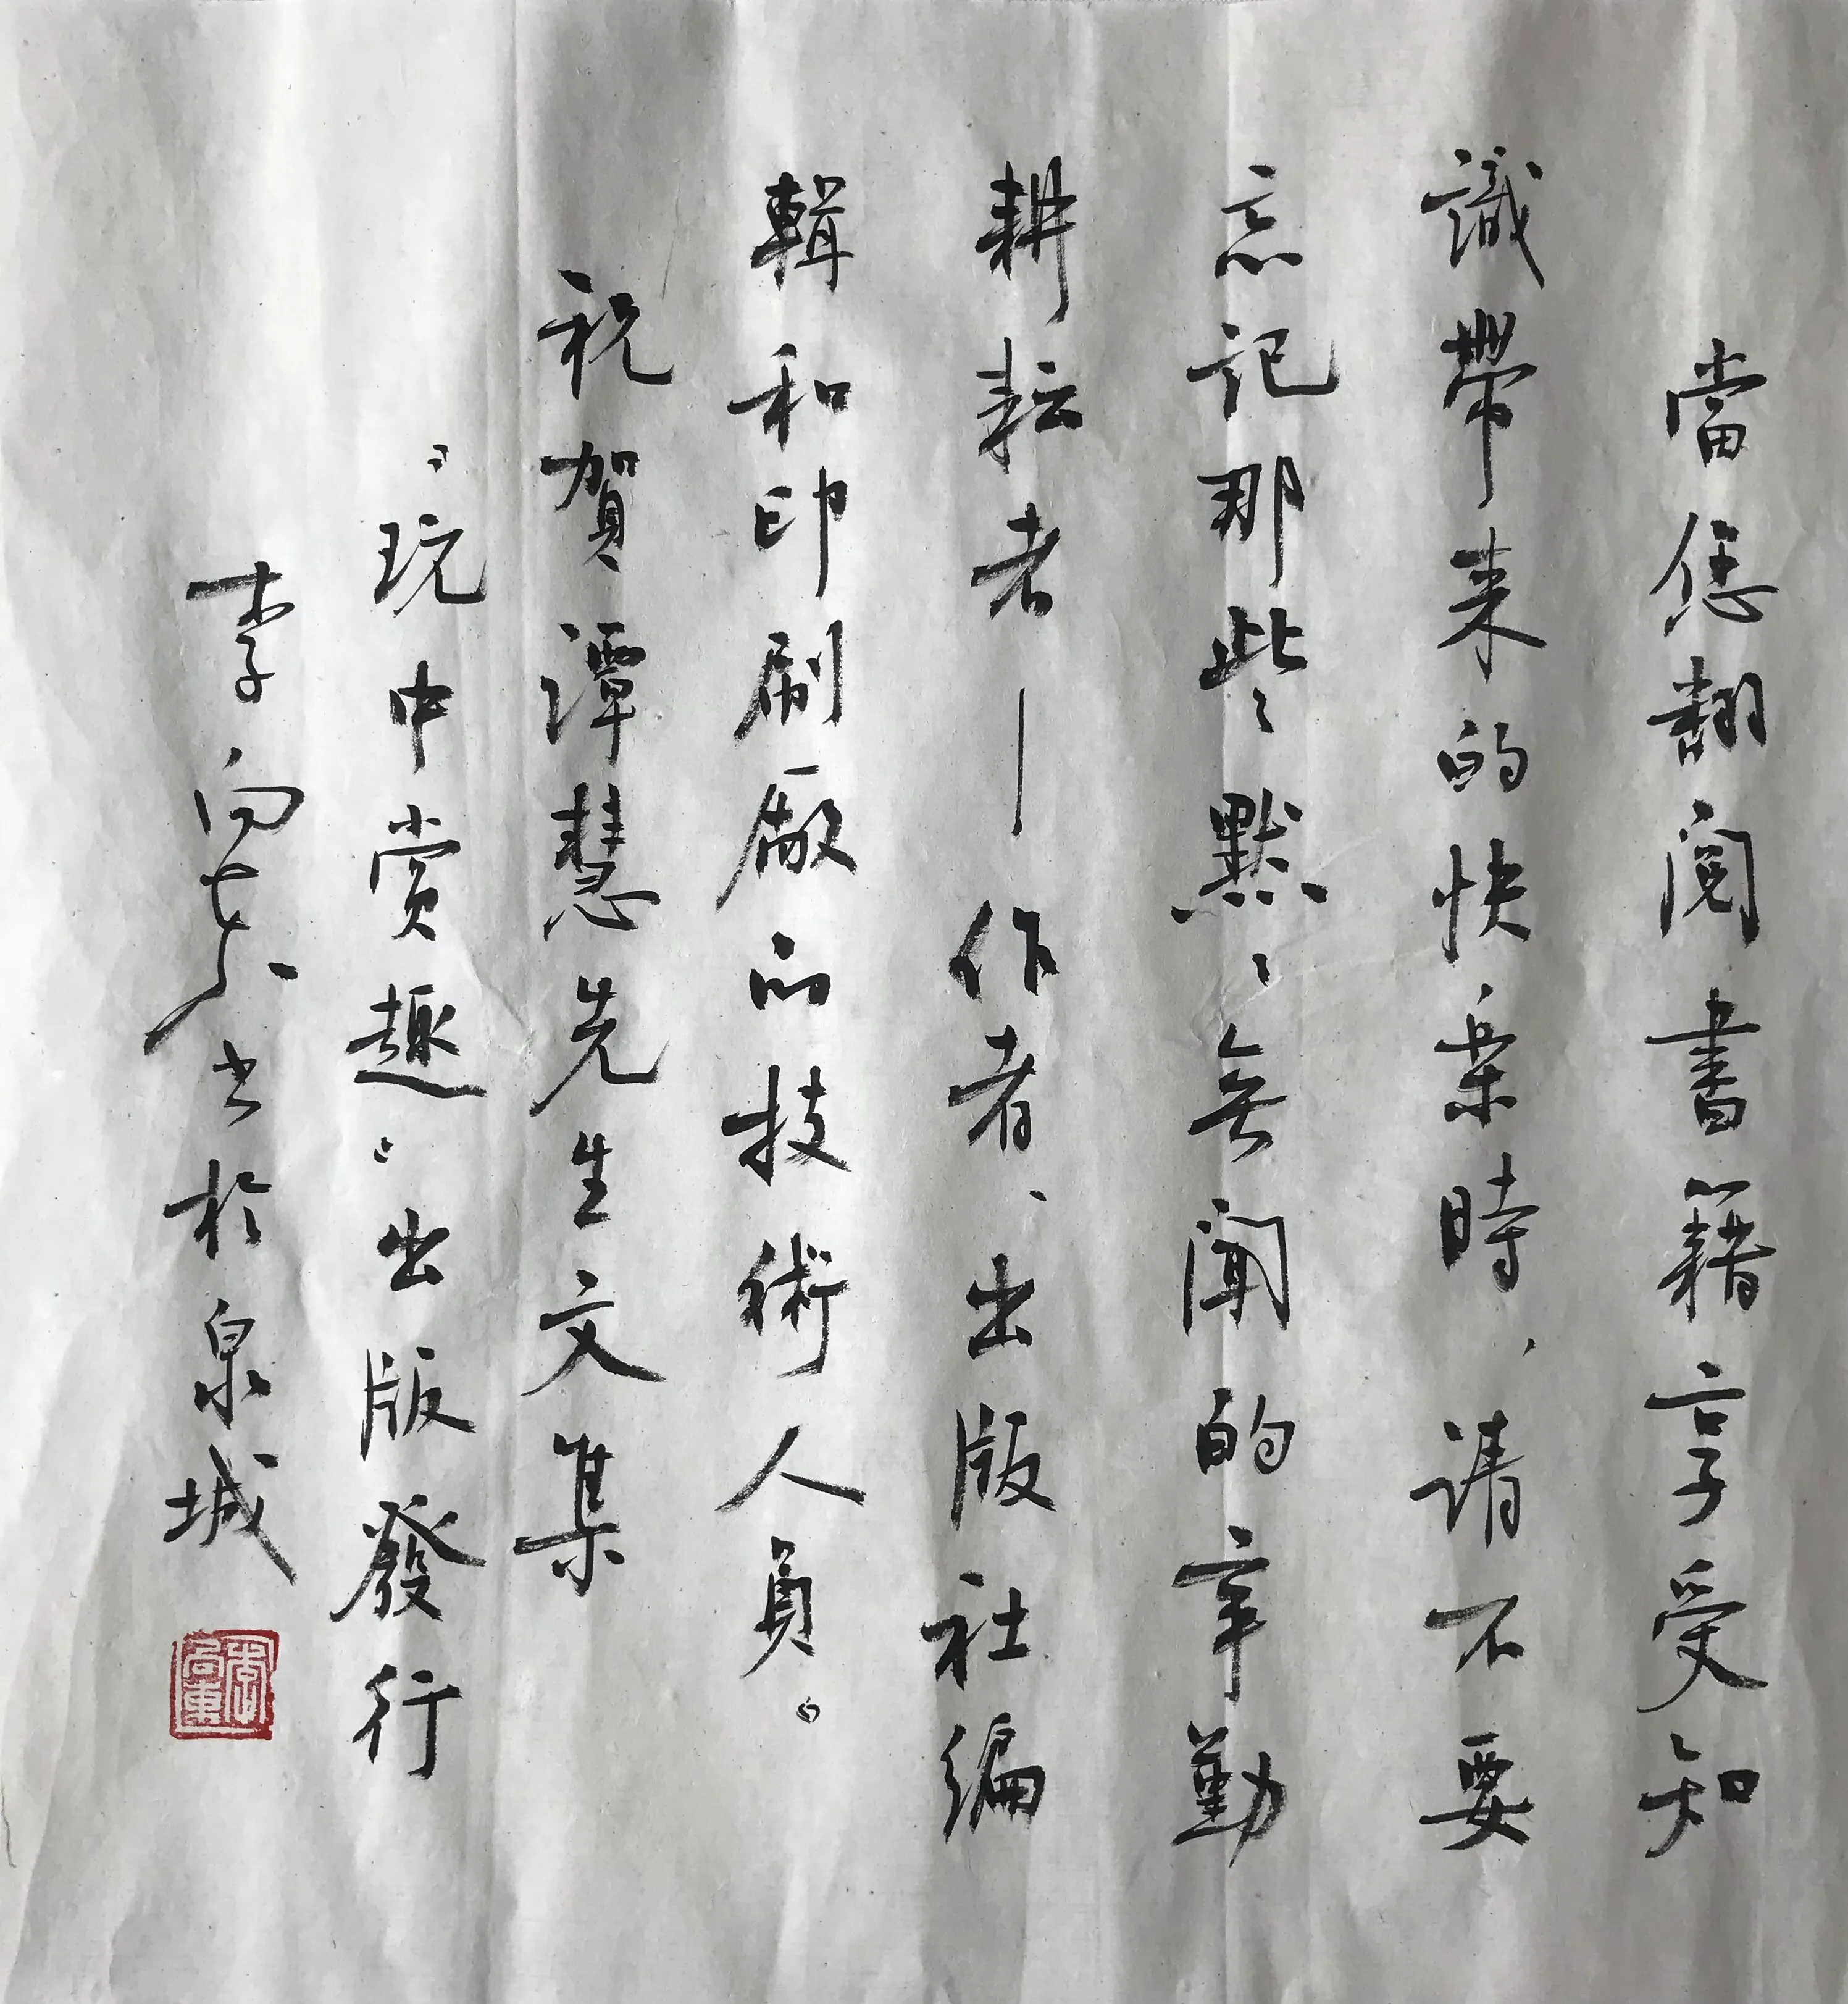 當您翻閱書籍享受知
識帶来的快楽時、请不要
忘記那些默、無聞的辛勤
耕耘者—作者、出版社编
輯和印刷廠的技術人員。
祝賀潭慧先生文集
"玩中赏趣"出版發行
李向東书於泉城